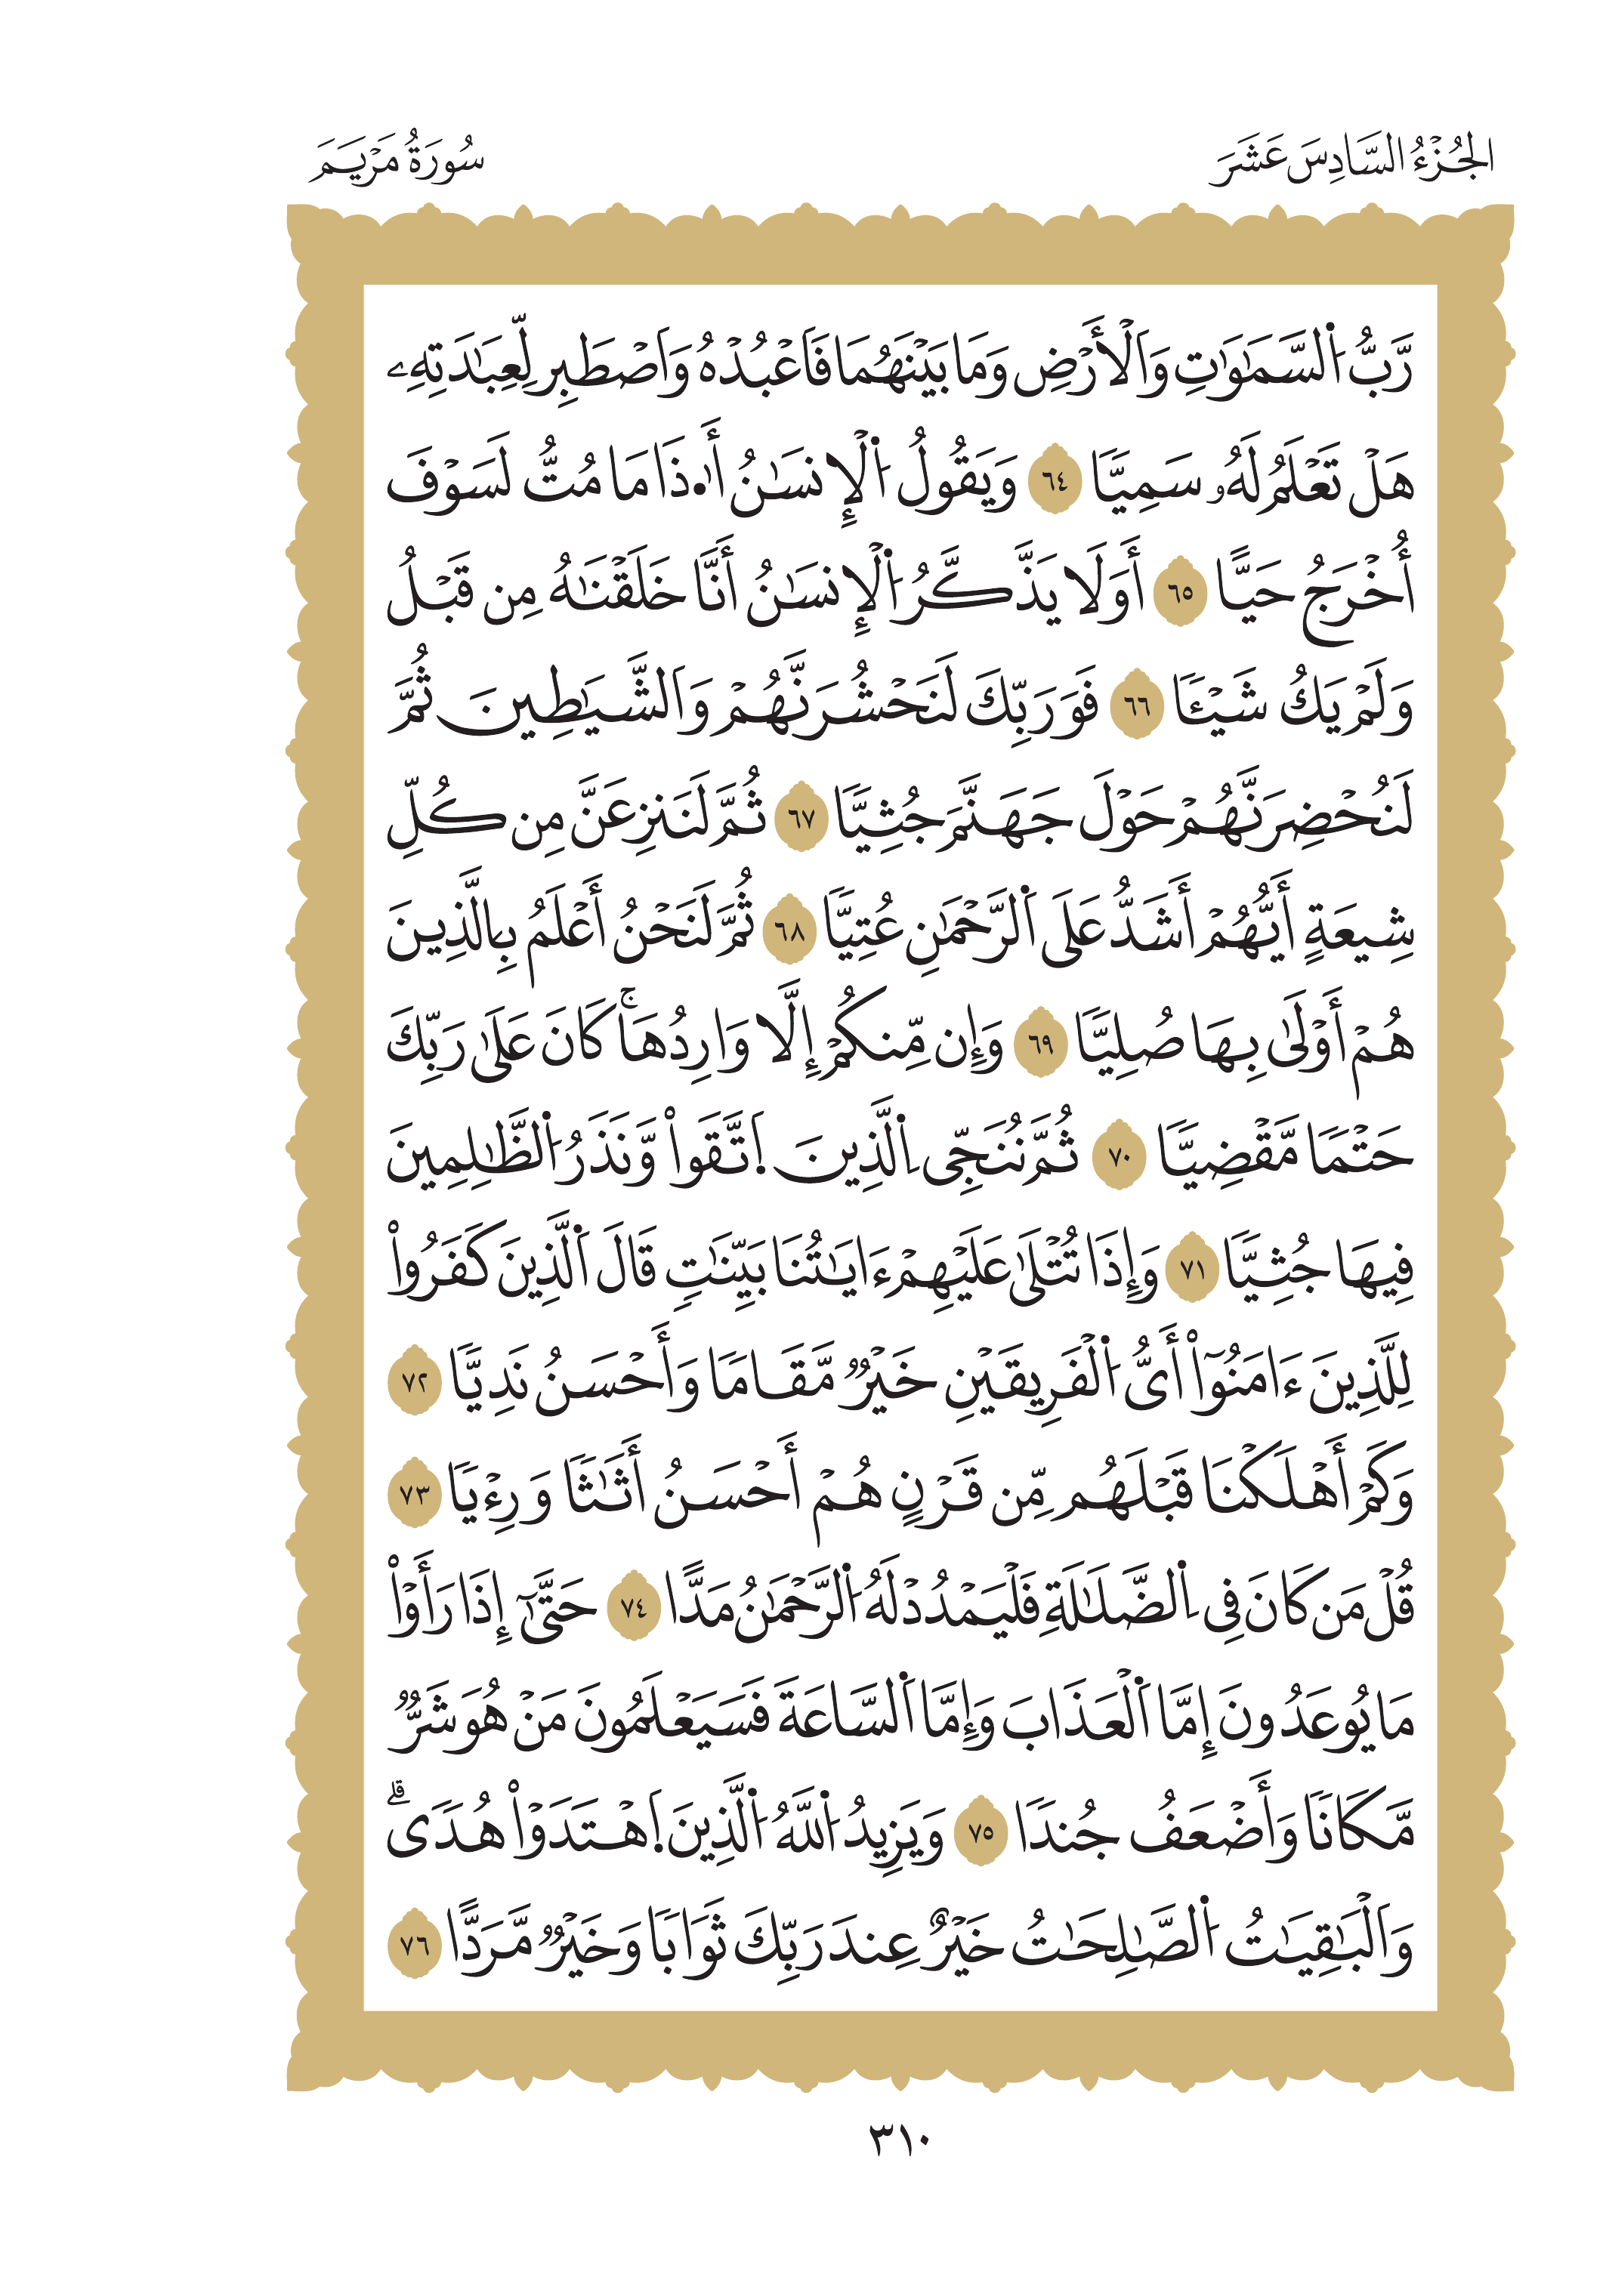 الجُزْءُ السَّادِسَ عَشَرَ
سُورَةُ مَرْيَمَ
رَّبُّ اُ۬لسَّمَٰوَٰتِ وَاَلْأَرْضِ وَمَا بَيْنَهُمَا فَاَعْبُدْهُ وَاَصْطَبِر لِّعِبَٰدَتِهِۦ
هَلْ تَعْلَمُ لَهُۥ سَمِيࣰّا ٦٤ وَيَقُولُ اُ۬لْإِنسَٰنُ أَٰ۟ذَا مَا مُتُّ لَسَوْفَ
أُخْرَجُ حَيًّا ٦٥ أَوَلَا يَذَّكَّرُ اُ۬لْإِنسَٰنُ أَنَّا خَلَقْنَٰهُ مِن قَبْلُ
وَلَمْ يَكُ شَيْـࣰٔا ٦٦ فَوَرَبِّكَ لَنَحْشُرَنَّهُمْ وَاَلشَّيَٰطِينَ ثُمَّ
لَنُحْضِرَنَّهُمْ حَوْلَ جَهَنَّمَ جُثِيࣰّا ٦٧ ثُمَّ لَنَنزِعَنَّ مِن كُلِّ
شِيعَةٍ أَيُّهُمْ أَشَدُّ عَلَى اَ۬لرَّحْمَٰنِ عُتِيࣰّا ٦٨ ثُمَّ لَنَحْنُ أَعْلَمُ بِالَّذِينَ
هُمْ أَوْلَىٰ بِهَا صُلِيࣰّا ٦٩ وَإِن مِّنكُمْ إِلَّا وَارِدُهَاۚ كَانَ عَلَىٰ رَبِّكَ
حَتْمࣰا مَّقْضِيࣰّا ٧٠ ثُمَّ نُنَجِّي اِ۬لَّذِينَ اَ۪تَّقَواْ وَّنَذَرُ اُ۬لظَّٰلِمِينَ
فِيهَا جُثِيࣰّا ٧١ وَإِذَا تُتْلَىٰ عَلَيْهِمْ ءَايَٰتُنَا بَيِّنَٰتࣲ قَالَ اَ۬لَّذِينَ كَفَرُواْ
لِلَّذِينَ ءَامَنُوٓاْ أَىُّ اُ۬لْفَرِيقَيْنِ خَيْرࣱ مَّقَامࣰا وَأَحْسَنُ نَدِيࣰّا ٧٢
وَكَمْ أَهْلَكْنَا قَبْلَهُم مِّن قَرْنٍ هُمْ أَحْسَنُ أَثَٰثࣰا وَرِءْيࣰا ٧٣
قُلْ مَن كَانَ فِي اِ۬لضَّلَٰلَةِ فَلْيَمْدُدْ لَهُ اُ۬لرَّحْمَٰنُ مَدًّا ٧٤ حَتَّىٰٓ إِذَا رَأَوْاْ
مَا يُوعَدُونَ إِمَّا اَ۬لْعَذَابَ وَإِمَّا اَ۬لسَّاعَةَ فَسَيَعْلَمُونَ مَنْ هُوَ شَرࣱّ
مَّكَانࣰا وَأَضْعَفُ جُندࣰا ٧٥ وَيَزِيدُ اُ۬للَّهُ اُ۬لَّذِينَ اَ۪هْتَدَوْاْ هُدࣰىۗ
وَاَلْبَٰقِيَٰتُ اُ۬لصَّٰلِحَٰتُ خَيْرٌ عِندَ رَبِّكَ ثَوَابࣰا وَخَيْرࣱ مَّرَدًّا ٧٦
٣١٠